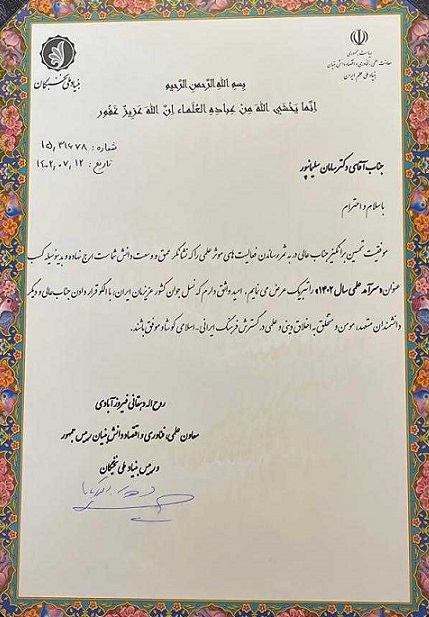 ریاست جمهوری
معاونت علمی، فناوری و اقتصاد دانش بنیان
بنیاد ملی علم ایران
بنیاد ملی نخبگان
بسم الله الرحمن الرحیم
انما یخشی الله من عباده العلماء ان الله عزیز غفور
شماره : ۱۵/۳۱۶۷۸
تاریخ : ۱۴۰۲/۰۷/۱۲
جناب آقای دکتر سامان سلیمانپور
با سلام و احترام
موفقیت تحسین برانگیز جناب عالی در به ثمر رساندن فعالیت های موثر علمی را که نشانگر عمق و وسعت دانش شماست ارج نهاده و بدینوسیله کسب
عنوان «سرآمد علمی سال ۱۴۰۲» را تبریک عرض می نمایم. امید واثق دارم که نسل جوان کشور عزیزمان ایران، با الگو قرار دادن جناب عالی و دیگر
دانشمندان متعهد، مومن و متخلق به اخلاق دینی و علمی در گسترش فرهنگ ایرانی-اسلامی کوشا و موفق باشند.
روح اله دهقانی فیروزآبادی
معاون علمی، فناوری و اقتصاد دانش بنیان رییس جمهور
و رییس بنیاد ملی نخبگان